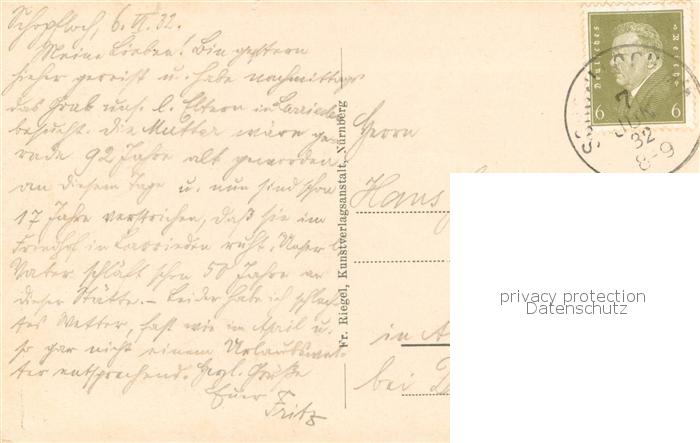 Schopfloch, 6. VI. 32.
Meine Lieben! Bin gestern
hieher gereist u. habe nachmittags
das Grab uns. l. Eltern in Larrieden
besucht. Die Mutter wäre ge-
rade 92 Jahre alt geworden
an diesem Tage u. nun sind schon
17 Jahre verstrichen, daß sie im
Friedhof in Larrieden ruht. Unser l.
Vater schläft schon 50 Jahre an
dieser Stätte. – Leider habe ich schlech-
tes Wetter, fast wie im April u.
so gar nicht einem Urlaubswet-
ter entsprechend. Herzl. Grüße
Euer Fritz
Fr. Riegel, Kunstverlagsanstalt, Nürnberg
Deutsches Reich
6 6
7
JUN
32
8-9
Herrn
Hans
in A
bei D
privacy protection
Datenschutz